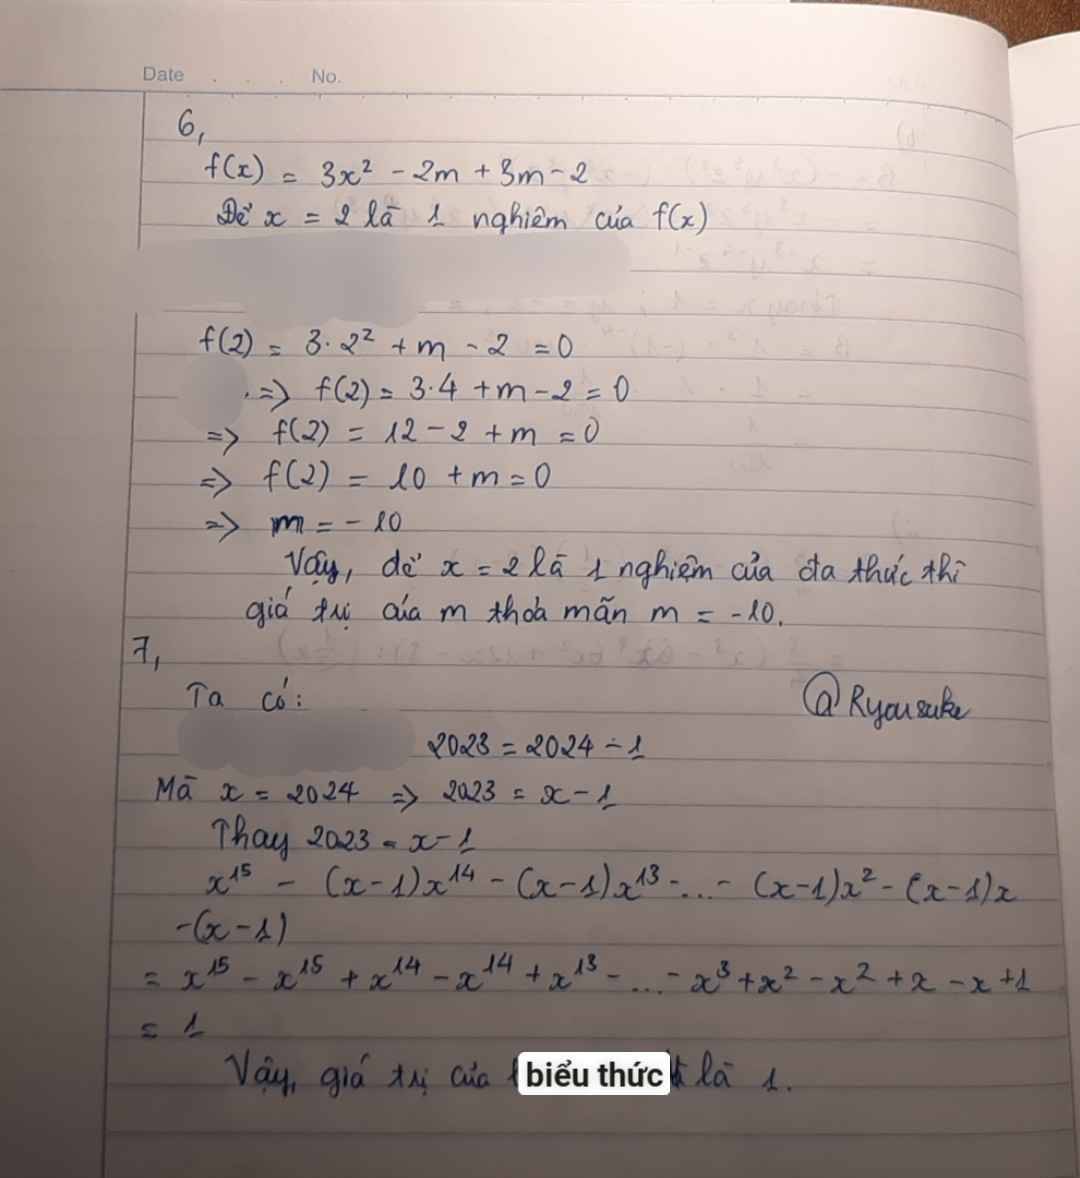 Date . . . No.
6,
f(x) = 3x² - 2m + 3m - 2
Để x = 2 là 1 nghiệm của f(x)
f(2) = 3·2² + m - 2 = 0
=> f(2) = 3·4 + m - 2 = 0
=> f(2) = 12 - 2 + m = 0
=> f(2) = 10 + m = 0
=> m = - 10
Vậy, để x = 2 là 1 nghiệm của đa thức thì
giá trị của m thoả mãn m = -10.
7,
Ta có:
@Ryousuke
2023 = 2024 - 1
Mà x = 2024 => 2023 = x - 1
Thay 2023 = x - 1
x¹⁵ - (x-1)x¹⁴ - (x-1)x¹³ - ... - (x-1)x² - (x-1)x
-(x-1)
= x¹⁵ - x¹⁵ + x¹⁴ - x¹⁴ + x¹³ - ... - x³ + x² - x² + x - x + 1
= 1
Vậy, giá trị của biểu thức là 1.